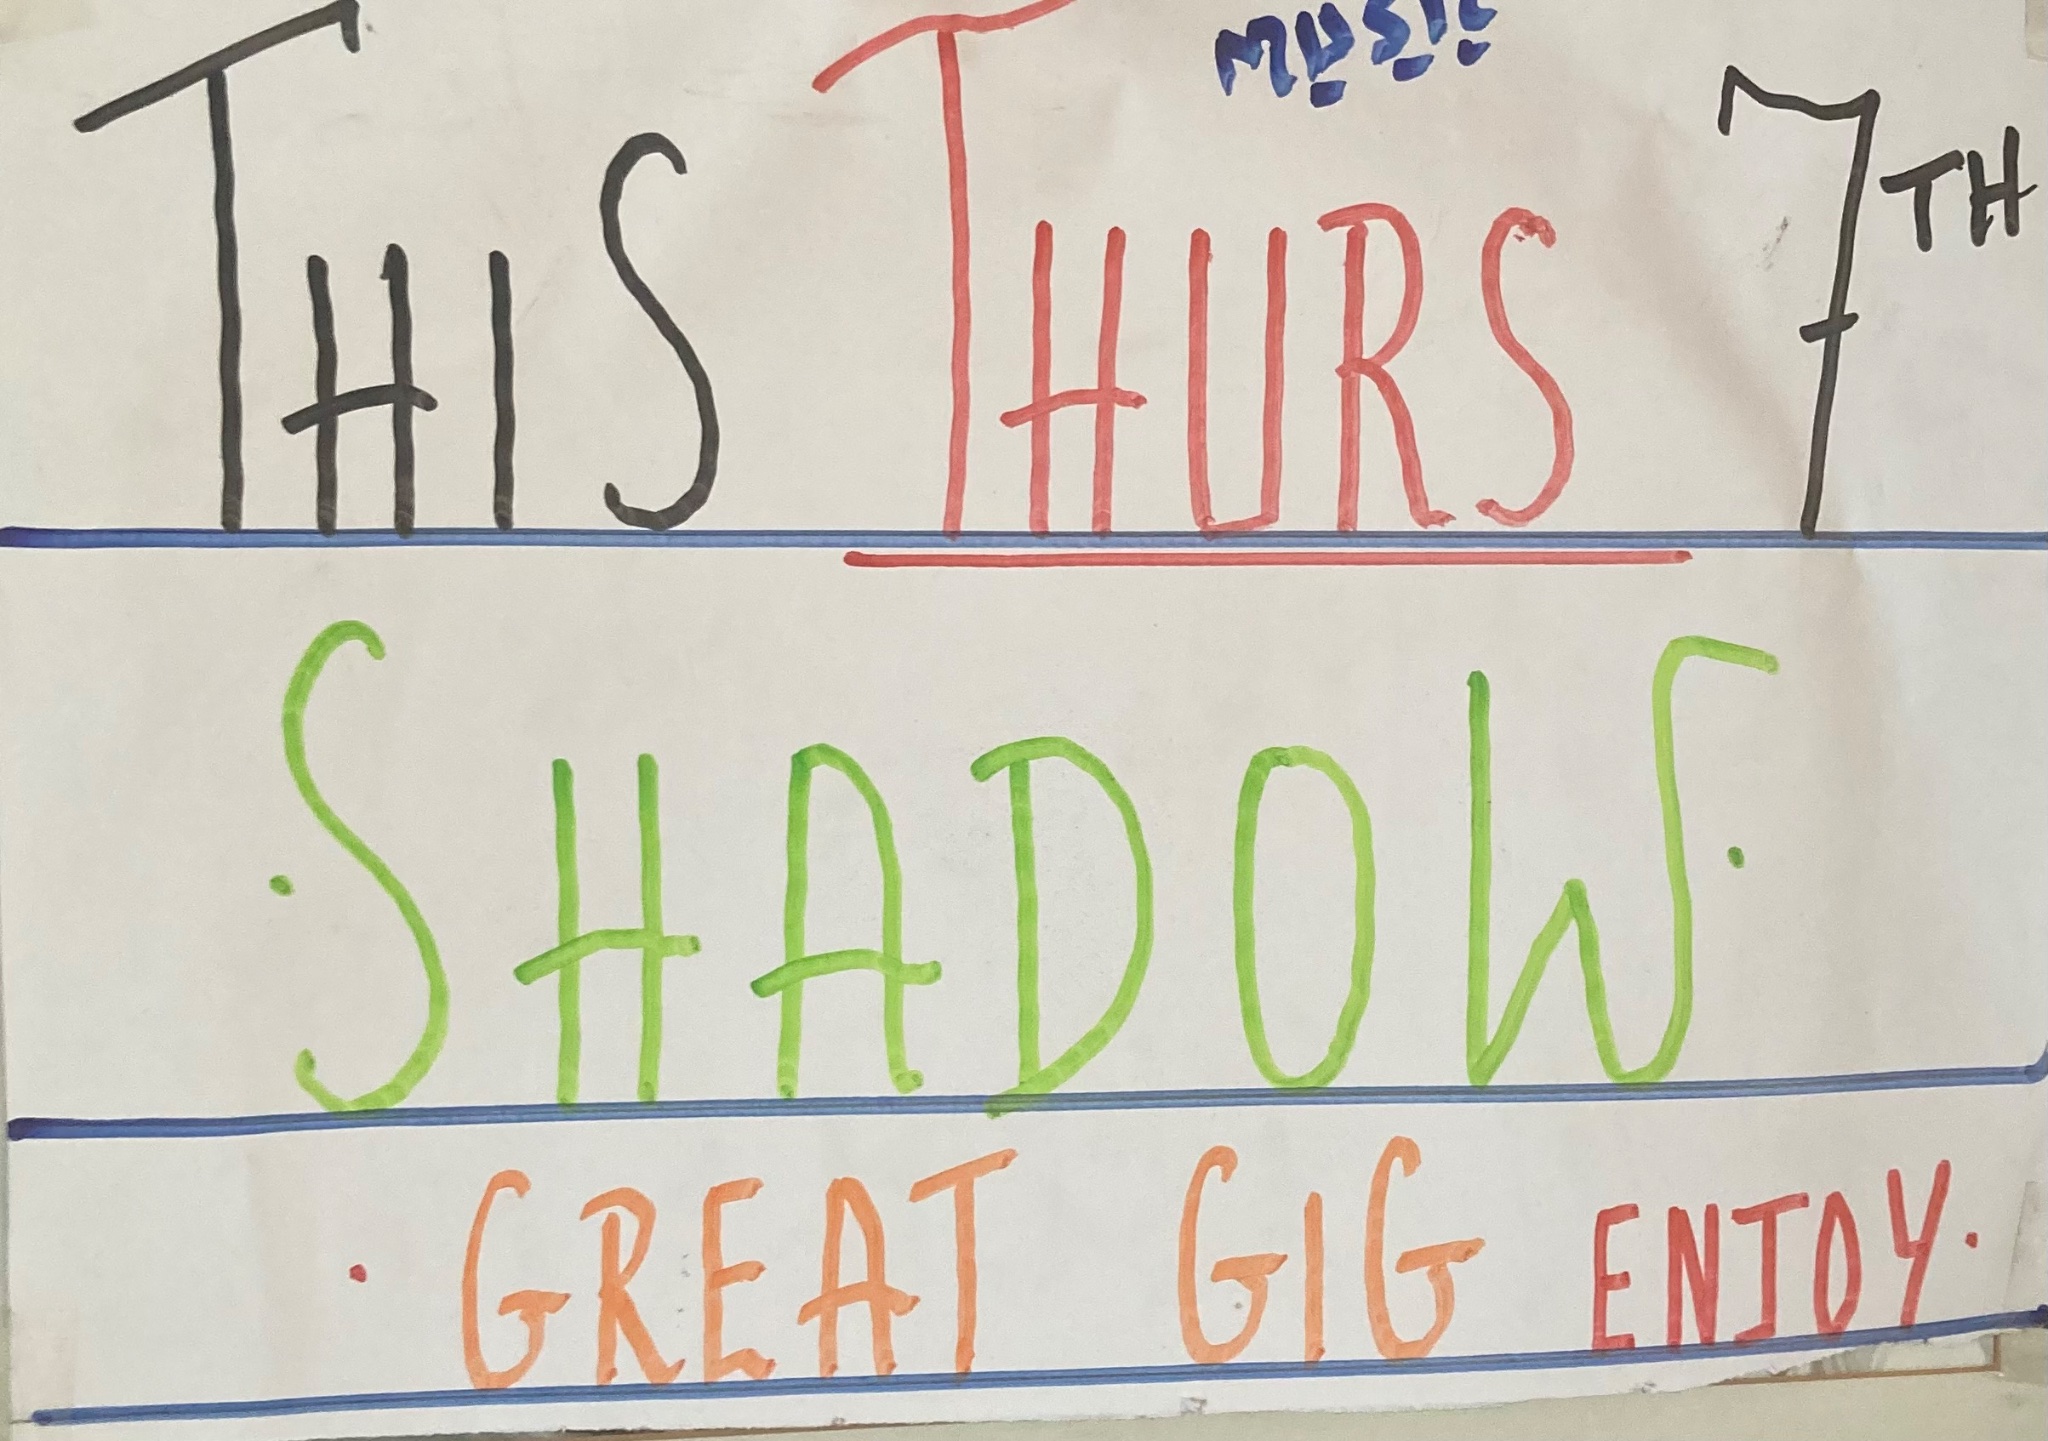 MUSIC
THIS THURS 7TH
· SHADOW ·
· GREAT GIG ENJOY ·